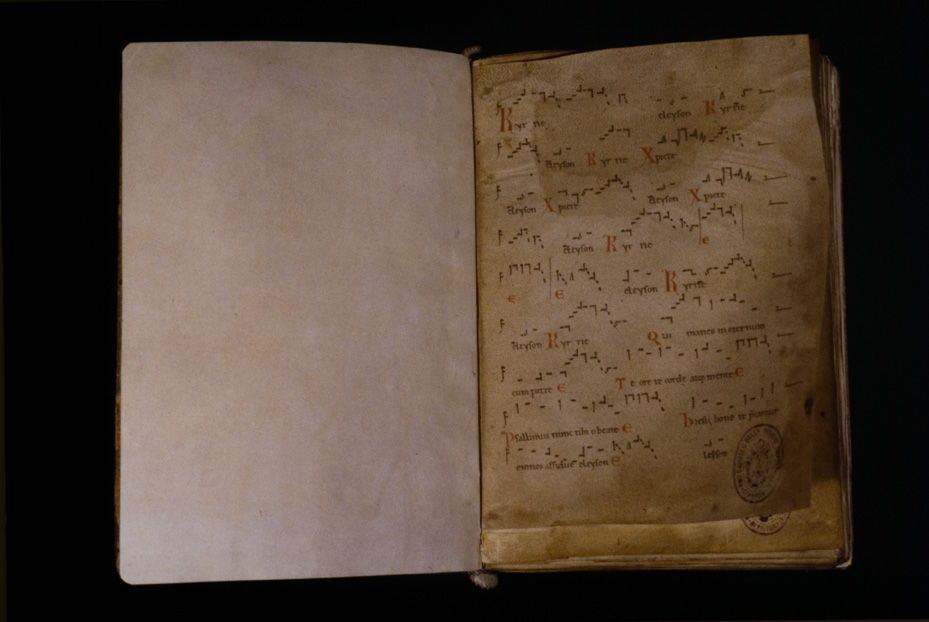 Kyrrie eleyson Kyrrie
eleyson Kyrrie Xpicte
eleyson Xpicte eleyson Xpicte
eleyson Kyrrie e
e e eleyson Kyrrie
eleyson Kyrrie Qui manes in eternum
cum patre e Te ore te corde atqȝ mente e
Psallimus nunc tibi o beate e Ihesu bone te
omnes assidue eleyson e leyson